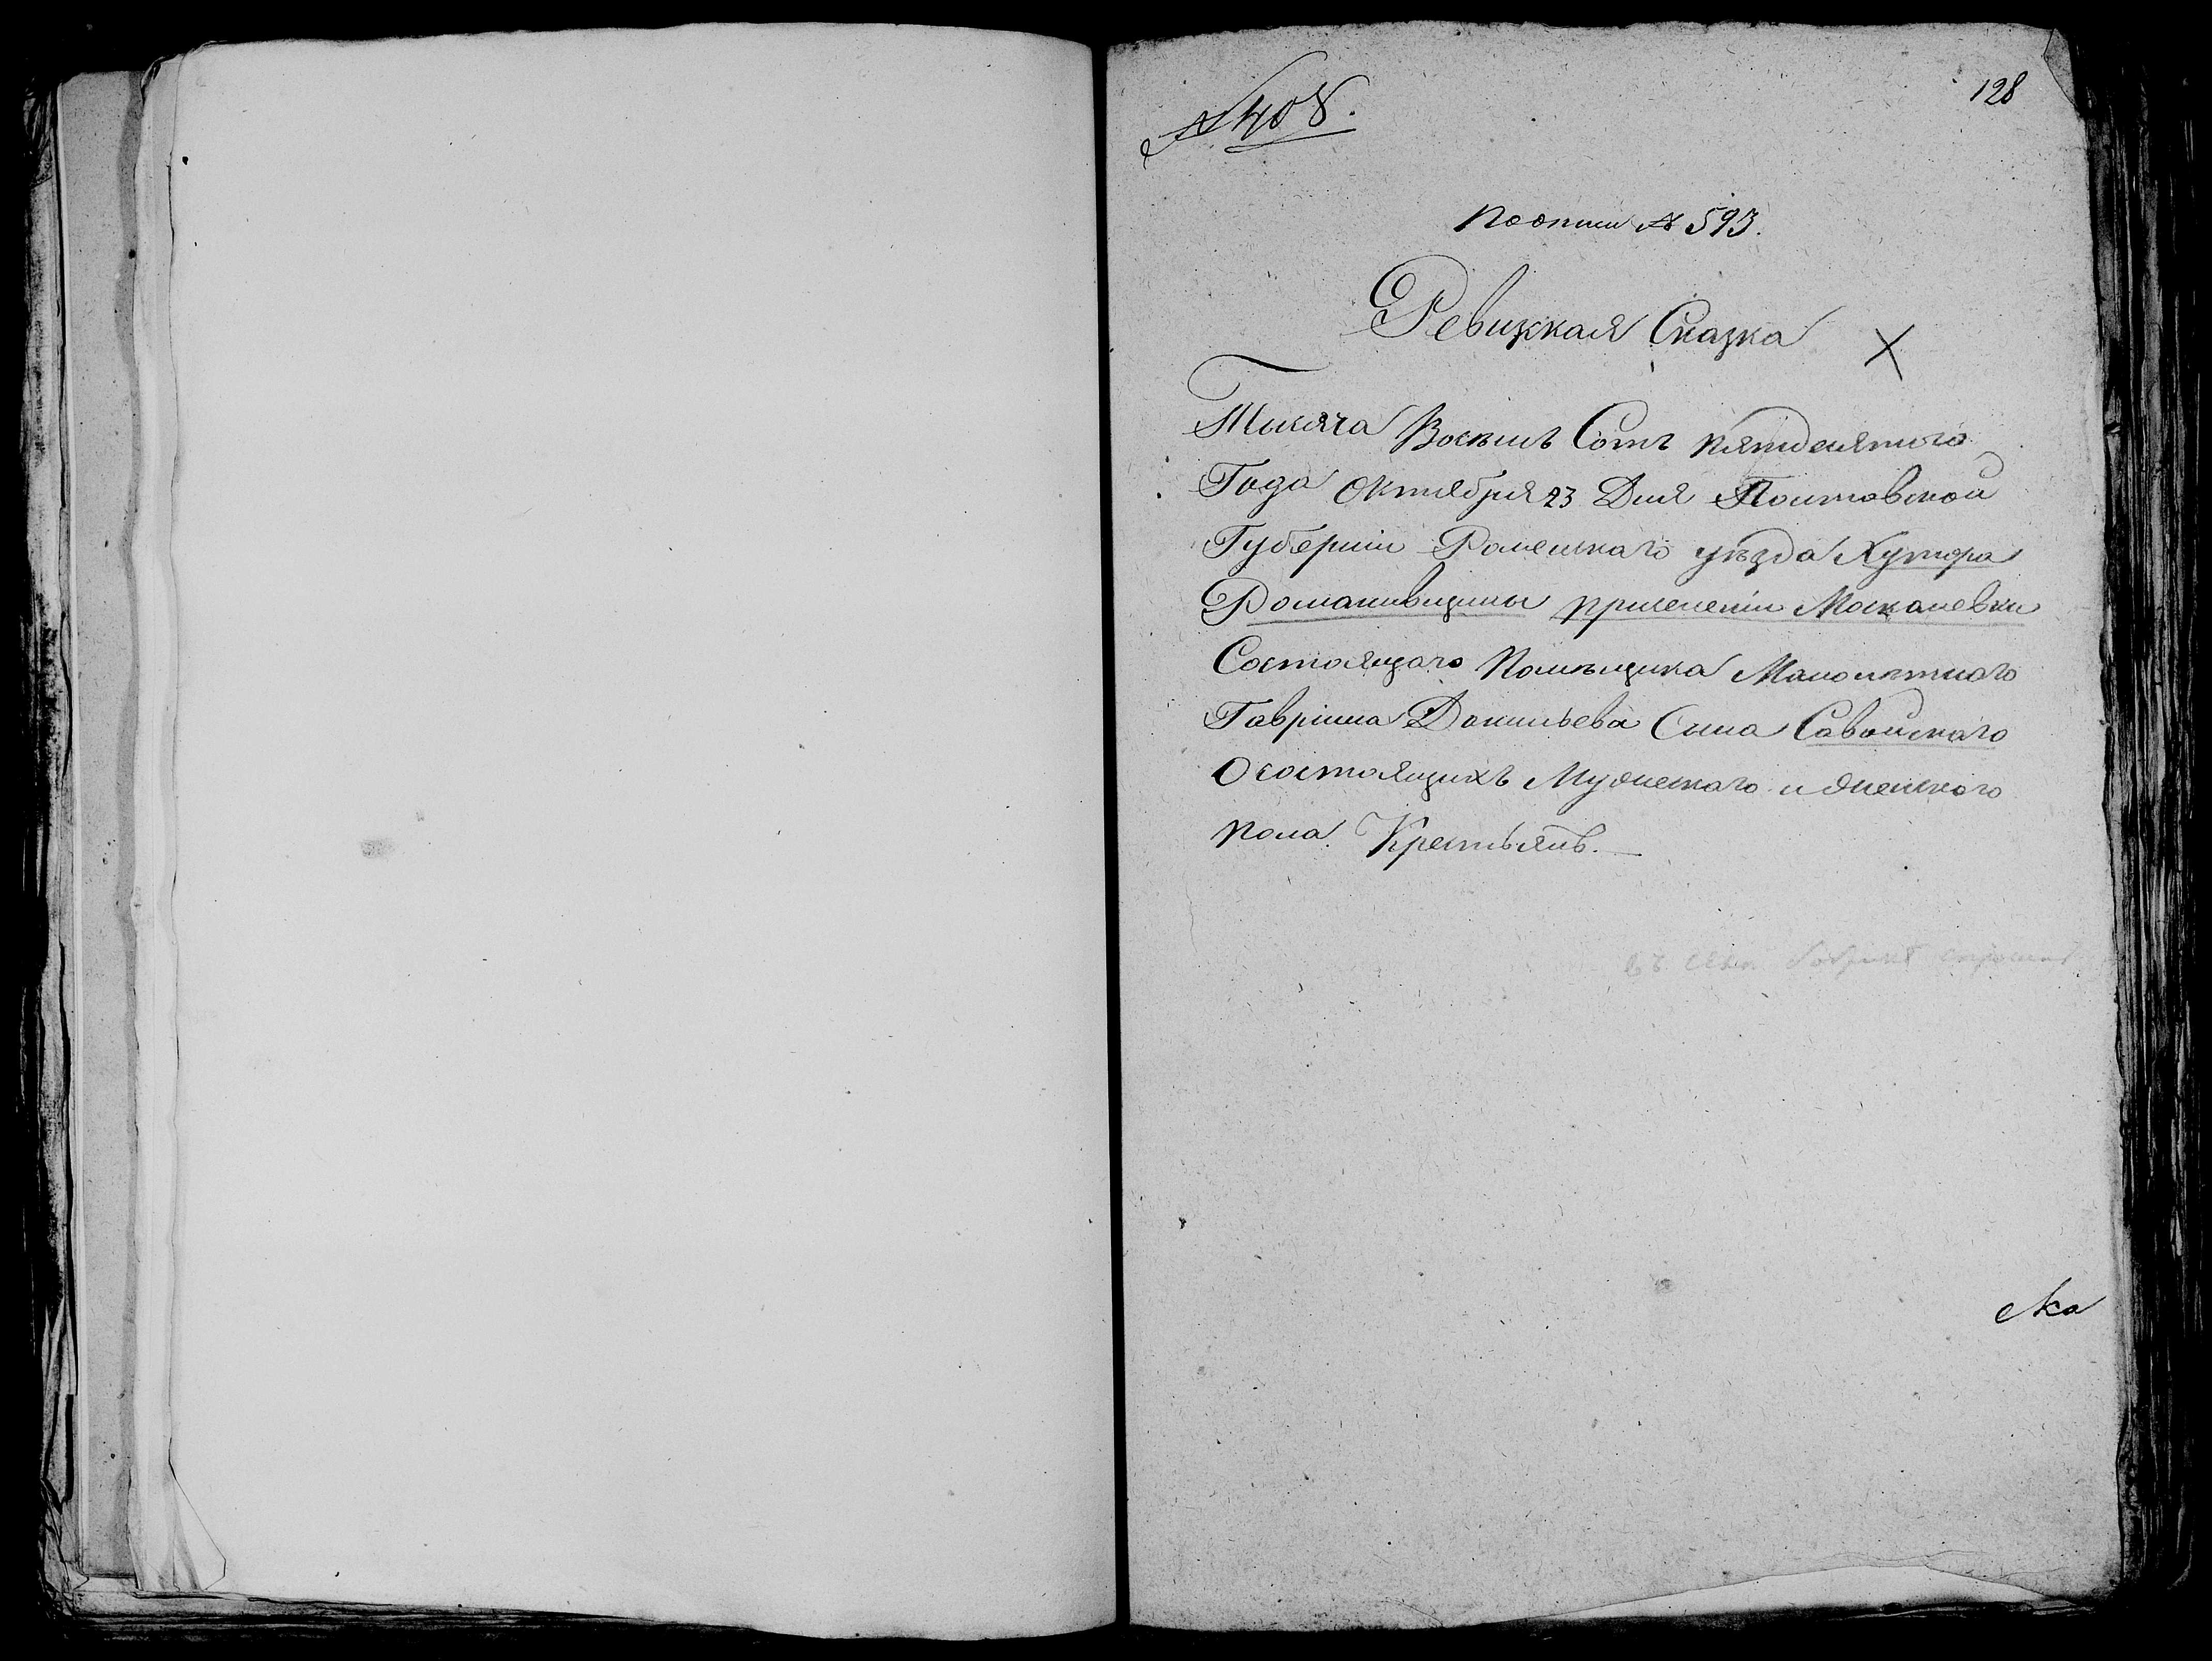 128
№ 408.
по описи № 593.
Ревизкая Сказка
Тысяча Восемь Сотъ пятдесятого
Года Октября 23 Дня Полтавской
Губерніи Роменскаго уезда Хутора
Романивщиныприселеніи Москалевки
Состоящаго Помѣщика Малолѣтнаго
Гавріила Данильева Сына Савойскаго
О состоящихъ Мужескаго и женскаго
пола Крестьянъ. —